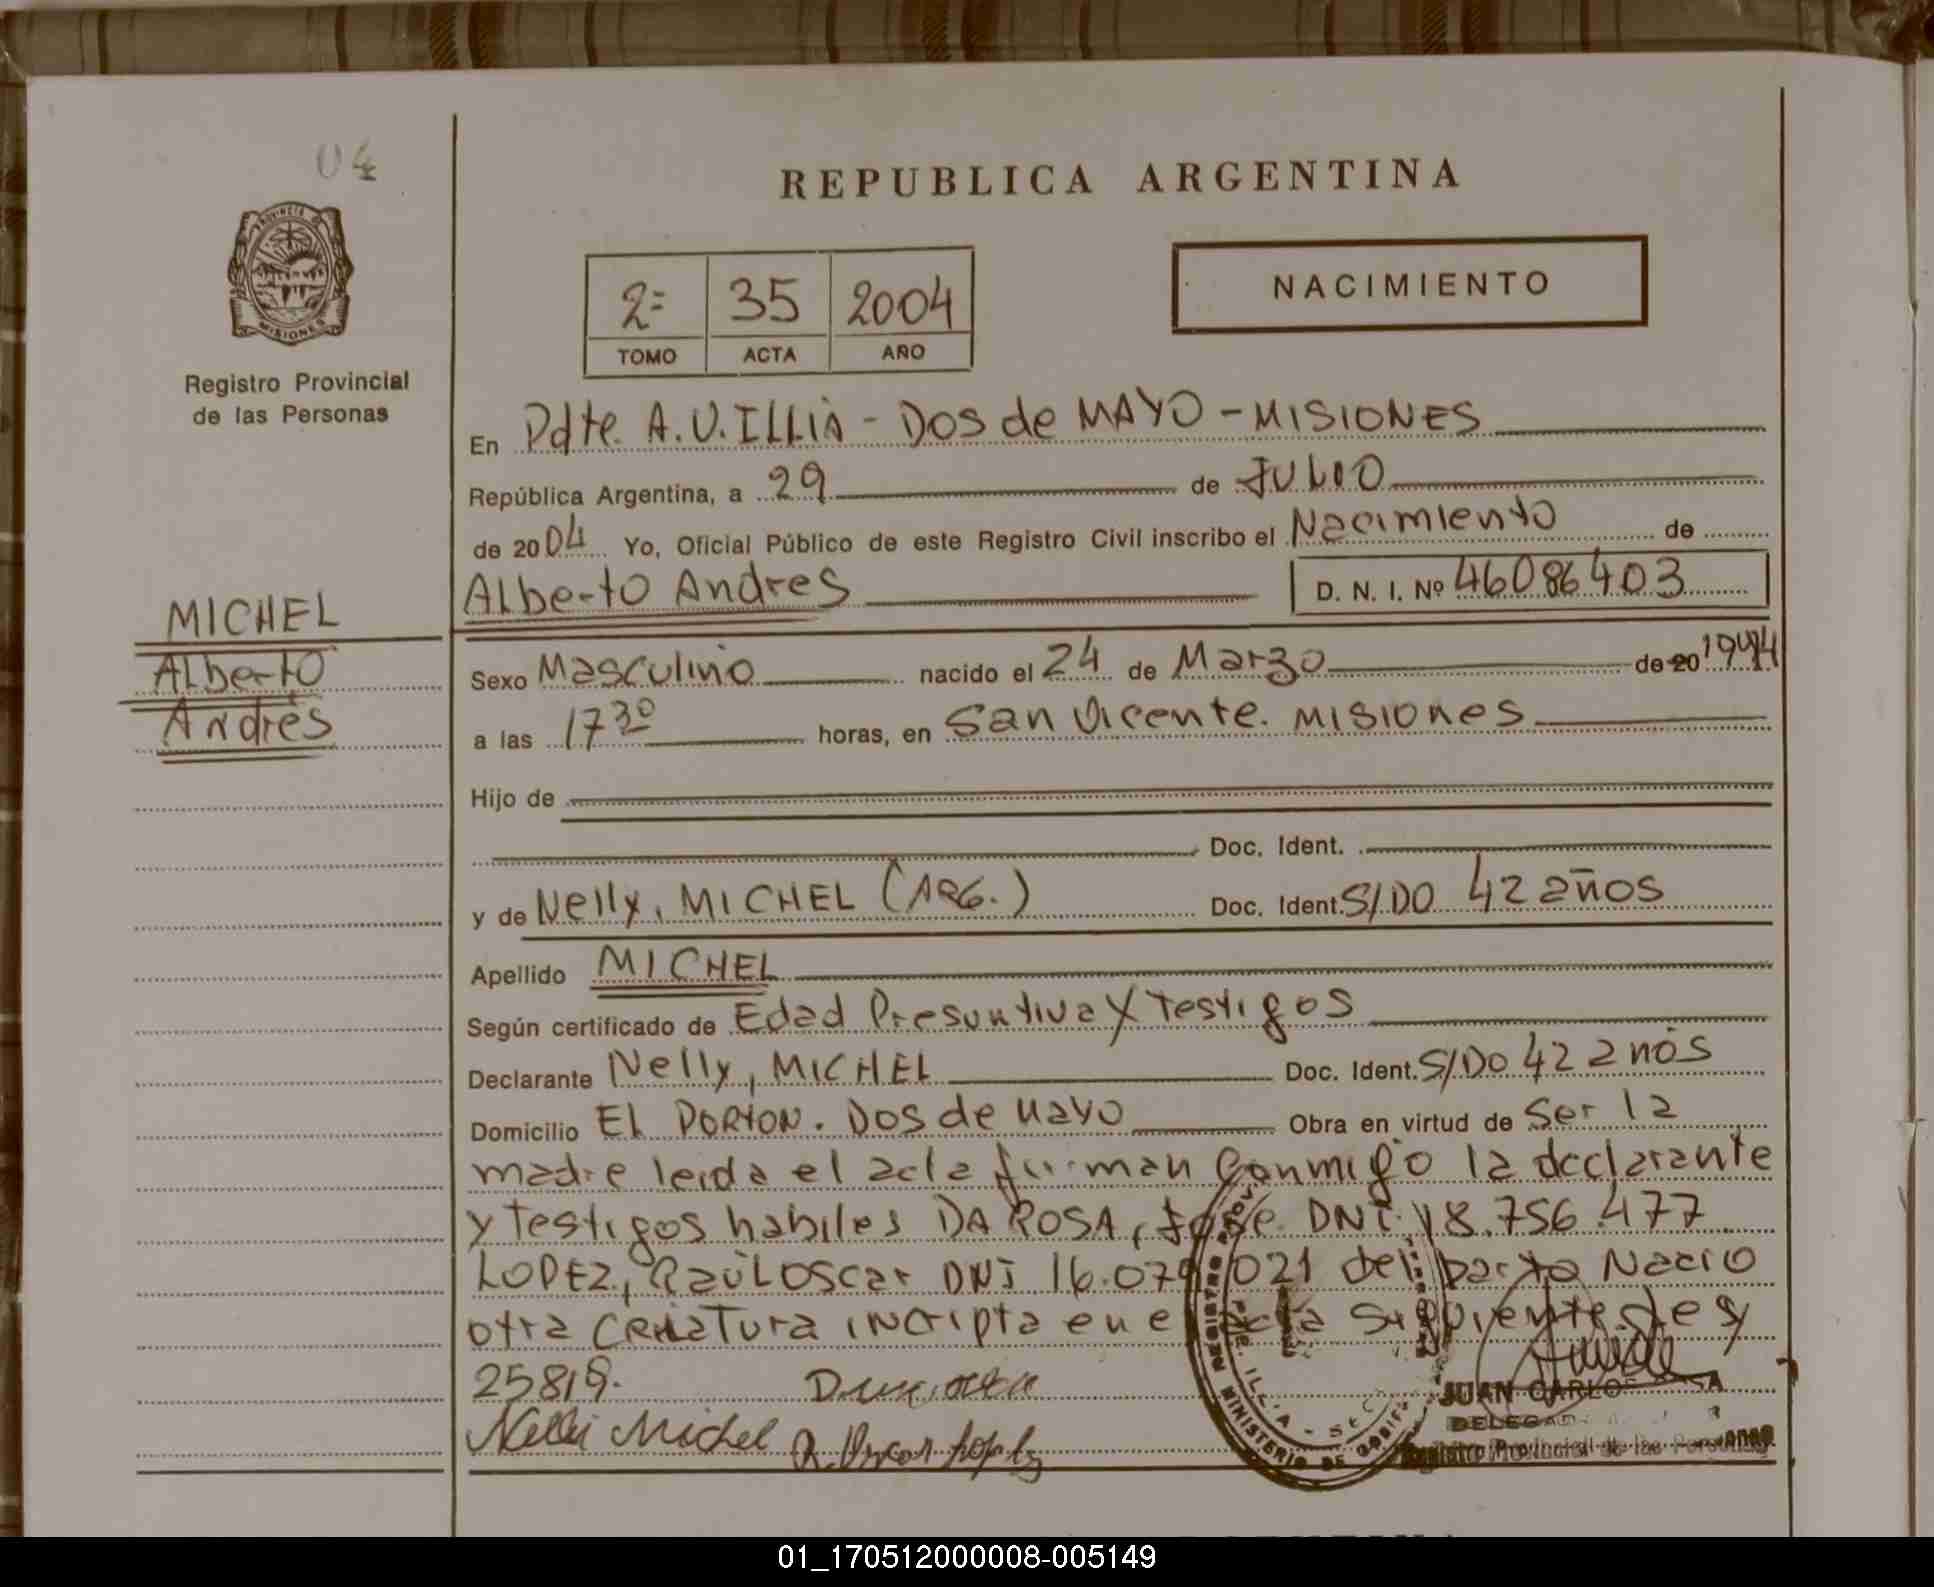 04
REPUBLICA ARGENTINA
PROVINCIA DE
MISIONES
Registro Provincial
de las Personas
2= 35 2004
TOMO ACTA AÑO
NACIMIENTO
En Pdte. A.U.ILLIA - DOS de MAYO - MISIONES
República Argentina, a 29 de JULIO
de 2004 Yo, Oficial Público de este Registro Civil inscribo el Nacimiento de
Alberto Andres D. N. I. Nº 46086403
MICHEL
Alberto
Andrés
Sexo Masculino nacido el 24 de Marzo de 20
a las 17 30 horas, en San Vicente. MISIONES
Hijo de
Doc. Ident.
y de Nelly, MICHEL (ARG.) Doc. Ident. S/DO 42 años
Apellido MICHEL
Según certificado de Edad Presuntiva y Testigos
Declarante Nelly, MICHEL Doc. Ident. S/DO 42 años
Domicilio EL PORTON. Dos de Mayo Obra en virtud de Ser la
madre leida el acta firman conmigo la declarante
y Testigos habiles DA ROSA, Jose DNI. 18.756.477
LOPEZ, Raúl Oscar DNI 16.079.021 del parto Nacio
otra CRiaTura iNcripta en e acta siguiente. Ley
25819.
Nelli Michel R. Oscar Lopez
MINISTERIO DE GOBIE
JUAN CARLOS
DELEGADO
Registro Provincial de las Personas
01_170512000008-005149